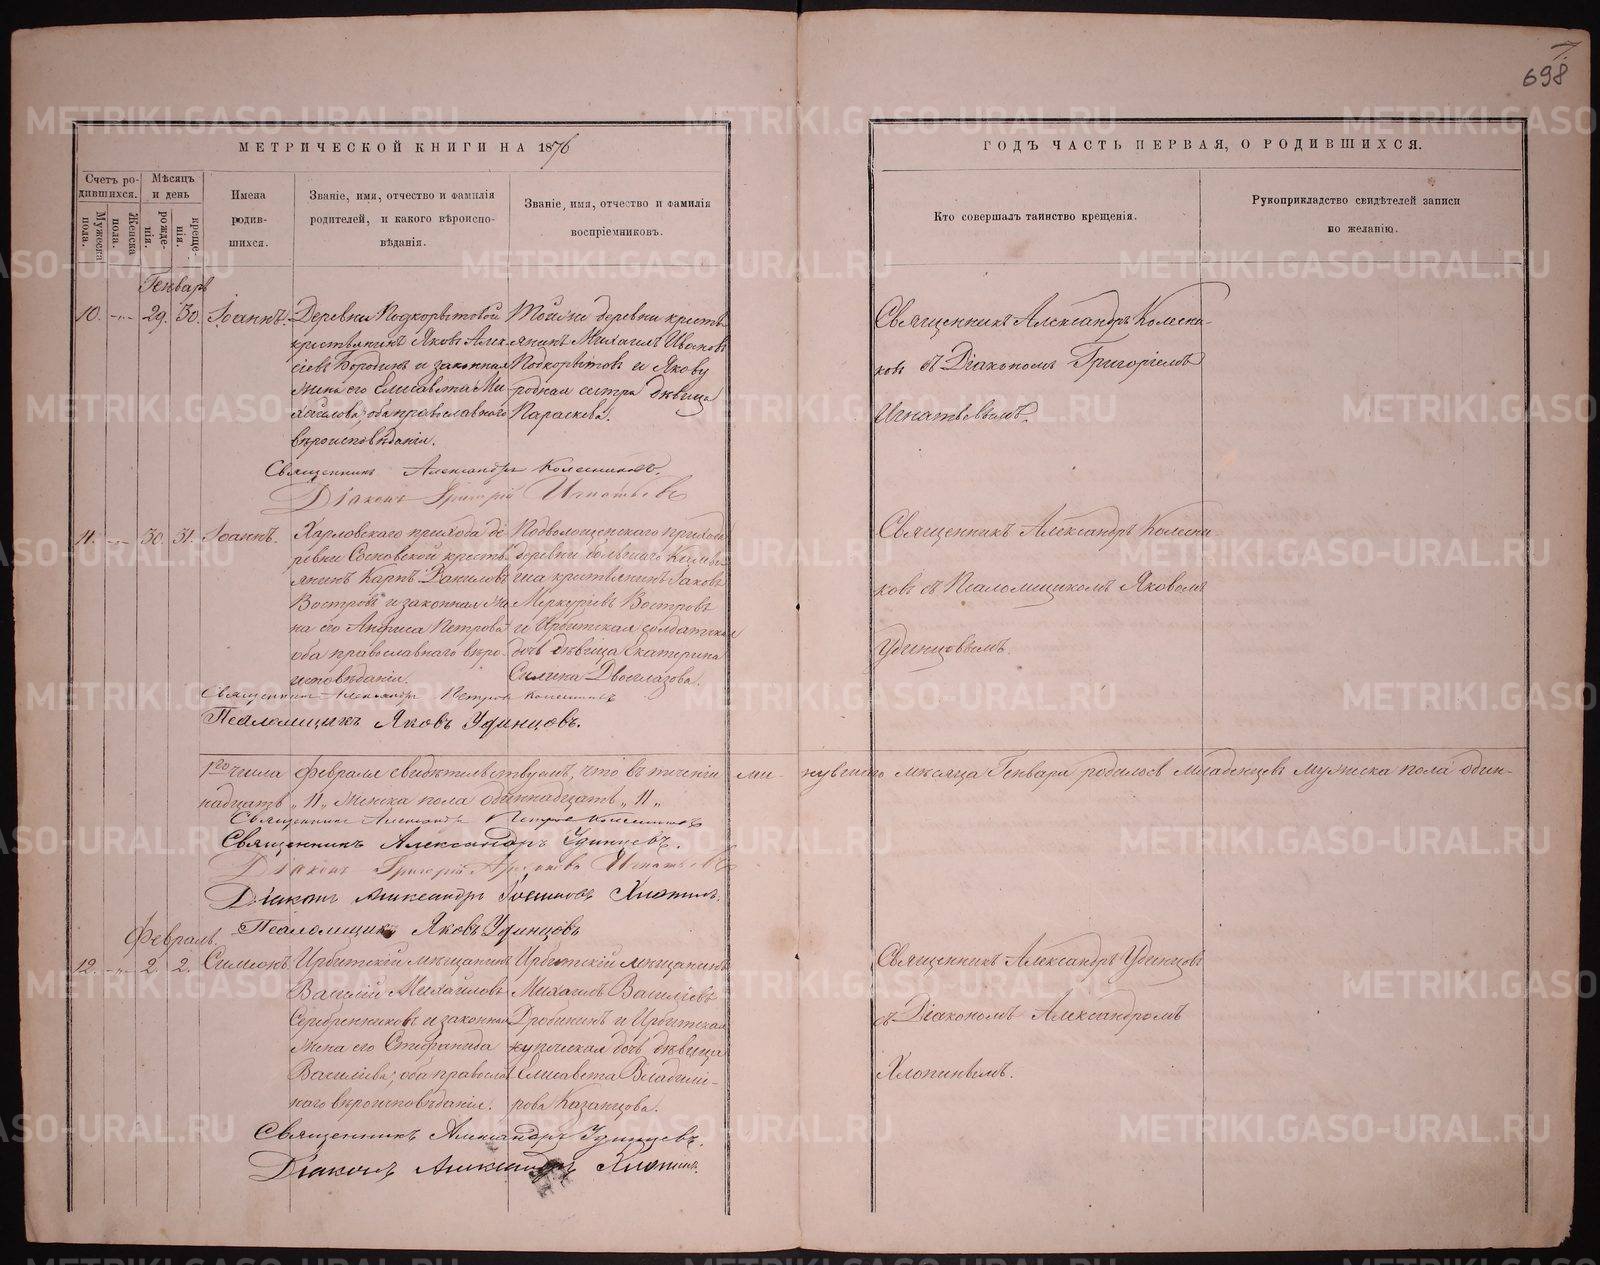 7.
698
МЕТРИЧЕСКОЙ КНИГИ НА 1876
ГОДЪ ЧАСТЬ ПЕРВАЯ, О РОДИВШИХСЯ.
Счетъ ро-
дившихся.
Мужеска пола.
Женска пола.
Мѣсяцъ
и день
рожде-
нія.
креще-
нія.
Имена
родив-
шихся.
Званіе, имя, отчество и фамилія
родителей, и какого вѣроиспо-
вѣданія.
Званіе, имя, отчество и фамилія
воспріемниковъ.
Кто совершалъ таинство крещенія.
Рукоприкладство свидѣтелей записи
по желанію.
Генварь
10. -"- 29. 30. Іоаннъ.
Деревни Подкорытовой
крестьянинъ Яковъ Алек-
сіевъ Бородинъ и законная
жена его Елисавета Ми-
хайлова, оба православнаго
вѣроисповѣданія.
Той же деревни кресть-
янинъ Михаилъ Ивановъ
Подкорытовъ и Якову
родная сестра дѣвица
Параскева.
Священникъ Александръ Колесни-
ковъ съ Діакономъ Григоріемъ
Игнатьевымъ.
Священникъ Александръ Колесниковъ.
Діаконъ Григорій Игнатьевъ
11. -"- 30. 31. Іоаннъ.
Харловскаго прихода де-
ревни Сосновской кресть-
янинъ Карпъ Даниловъ
Востровъ и законная же-
на его Анфиса Петрова
оба православнаго вѣро-
исповѣданія.
Подволошенскаго прихода
деревни
крестьянинъ
Меркуріевъ Востровъ
и Ирбитская солдатская
дочь дѣвица Екатерина
Двоеглазова.
Священникъ Александръ Колесни-
ковъ съ Псаломщикомъ Яковомъ
Удинцовымъ.
Священникъ Александръ Петровъ Колесниковъ
Псаломщикъ Яковъ Удинцовъ.
1го числа Февраля свидѣтельствуемъ, что въ теченіи ми- нувшаго мѣсяца Генваря родилось младенцевъ мужеска пола один-
надцать „11„ женска пола одиннадцать „11„
Священникъ Александръ Петровъ Колесниковъ
Священникъ Александръ Удинцевъ.
Діаконъ Григорій Игнатьевъ
Діаконъ Александръ Хлопинъ.
Псаломщикъ Яковъ Удинцовъ
Февраль.
12. -"- 2. 2. Симеонъ.
Ирбитскій мѣщанинъ
Василій Михайловъ
Серебренниковъ и законная
жена его Стефанида
Васильева, оба православ-
наго вѣроисповѣданія.
Ирбитскій мѣщанинъ
Михаилъ Васильевъ
Дробининъ и Ирбитская
купеческая дочь дѣвица
Елисавета Владимі-
рова Казанцова.
Священникъ Александръ Удинцовъ
съ Діакономъ Александромъ
Хлопинымъ.
Священникъ Александръ Удинцевъ.
Діаконъ Александръ Хлопинъ.
METRIKI.GASO-URAL.RU